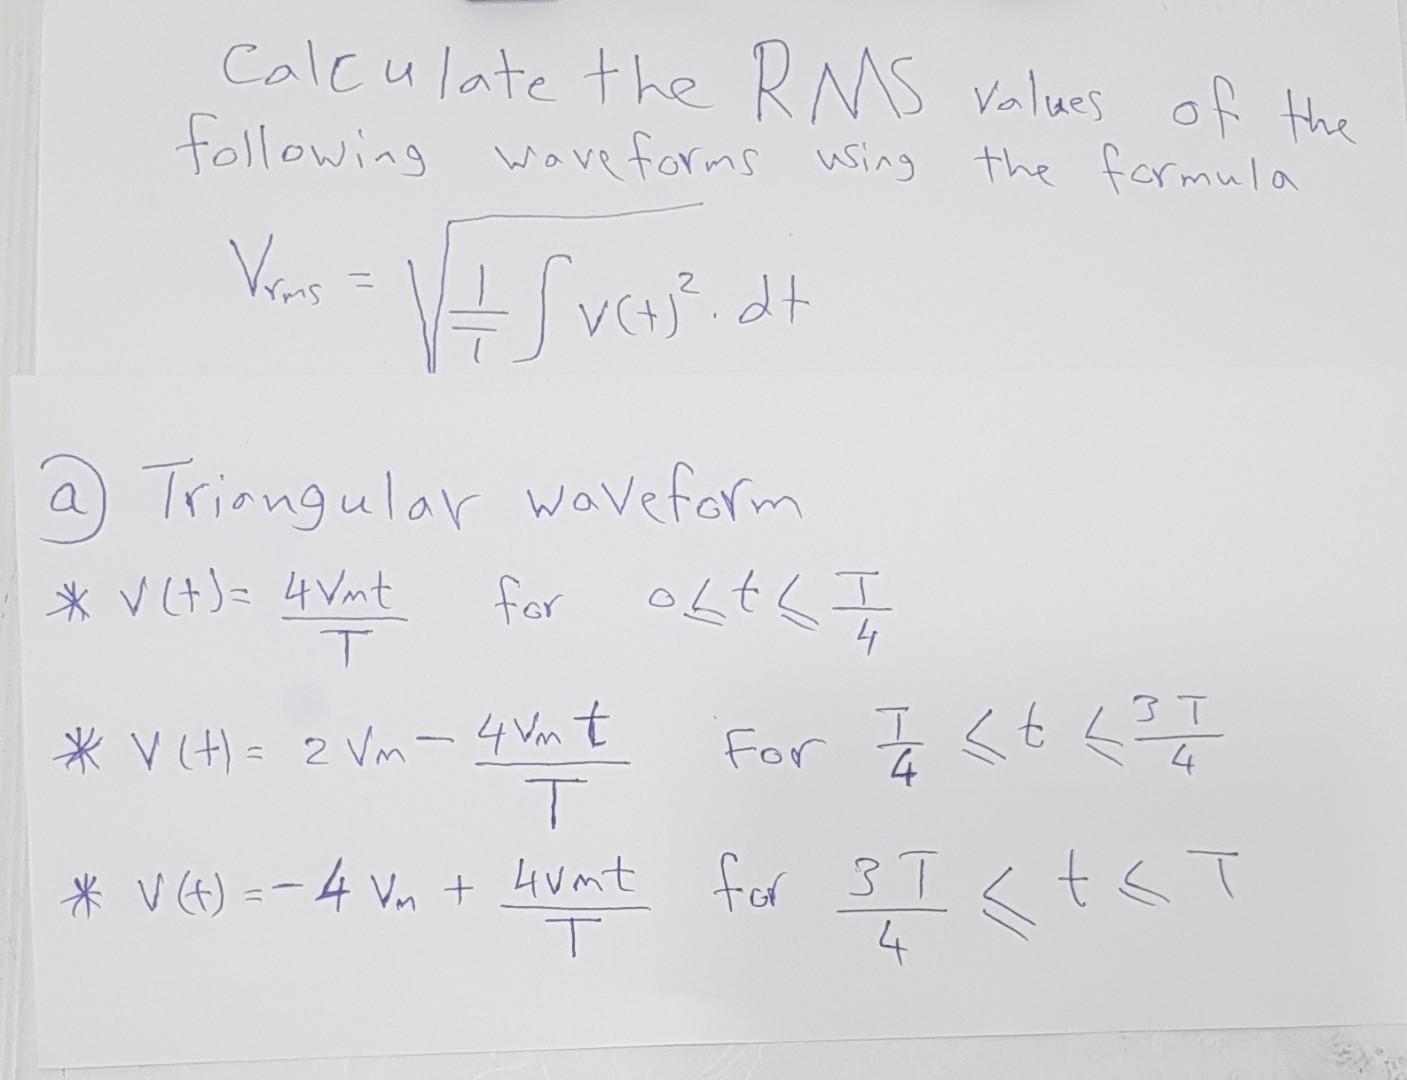 Calculate the RMS values of the
following waveforms using the formula
Vrms = √(1/T ∫ v(t)². dt
a) Triangular waveform
* V(t) = 4Vmt/T for 0 ≤ t ≤ T/4
* V(t) = 2Vm - 4Vmt/T For T/4 ≤ t ≤ 3T/4
* V(t) = -4Vm + 4vmt/T for 3T/4 ≤ t ≤ T